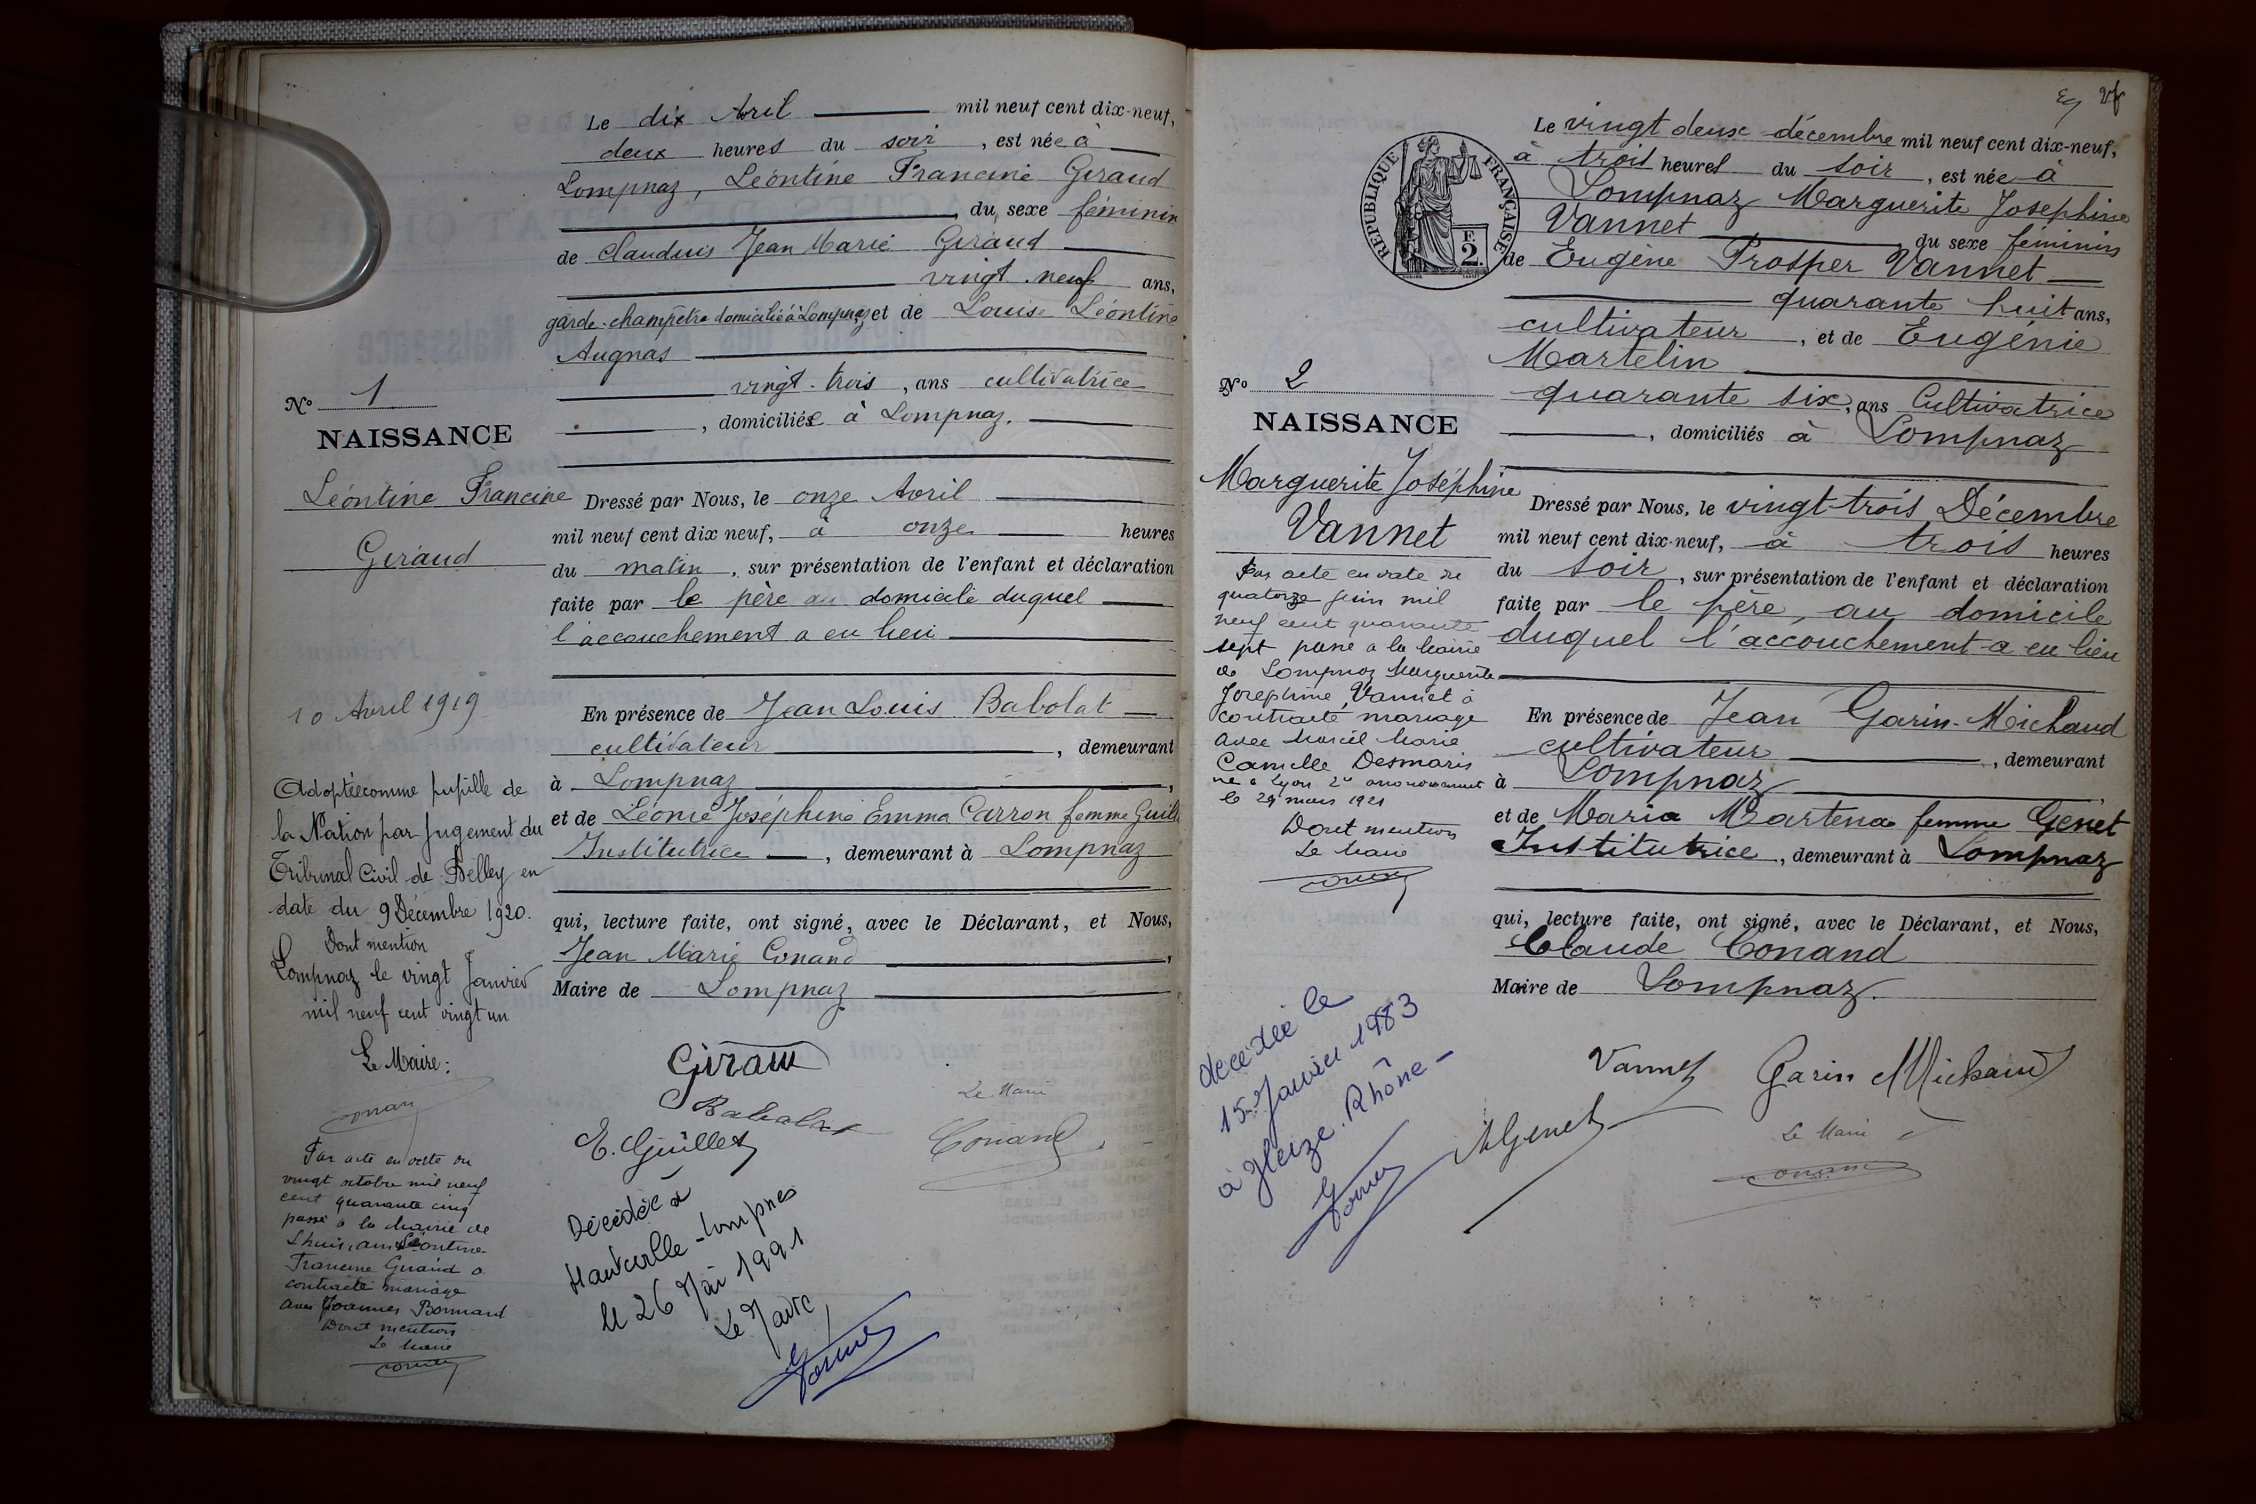 Le dix Avril mil neuf cent dix-neuf,
deux heures du soir, est née à
Lompnaz, Léontine Francine Giraud
du sexe féminin
de Claudius Jean Marie Giraud
vingt-neuf ans,
garde-champêtre domicilié à Lompnaz et de Louise Léontine
Augnas
vingt-trois, ans cultivatrice
, domiciliée à Lompnaz.
No 1
NAISSANCE
Léontine Francine
Giraud
Dressé par Nous, le onze Avril
mil neuf cent dix neuf, à onze heures
du matin, sur présentation de l'enfant et déclaration
faite par le père au domicile duquel
l'accouchement a eu lieu
10 Avril 1919
En présence de Jean Louis Babolat
cultivateur, demeurant
à Lompnaz,
et de Léonie Joséphine Emma Carron femme Guill
Institutrice, demeurant à Lompnaz
qui, lecture faite, ont signé, avec le Déclarant, et Nous,
Jean Marie Conand,
Maire de Lompnaz
Adoptée comme pupille de
la Nation par Jugement du
Tribunal Civil de Belley en
date du 9 Décembre 1920.
Dont mention
Lompnaz le vingt Janvier
mil neuf cent vingt un
Le Maire:
Conand
Par acte en date du
vingt octobre mil neuf
cent quarante cinq
passé à la Mairie de
Lhuis, ain Léontine
Francine Giraud a
contracté mariage
avec Joannes Bonnard
Dont mention
Le Maire
Giraud
Babolat
E. Guillet
Le Maire
Conand
Décédée à
Hauteville-Lompnes
le 26 Mai 1991
Le Maire
24
REPUBLIQUE FRANÇAISE
F. 2.
Le vingt deux décembre mil neuf cent dix-neuf,
à trois heures du soir, est née à
Lompnaz Marguerite Josephine
Vannet du sexe féminin
de Eugène Prosper Vannet
quarante huit ans,
cultivateur, et de Eugénie
Martelin
quarante six, ans Cultivatrice
, domiciliés à Lompnaz
No 2
NAISSANCE
Marguerite Joséphine
Vannet
Dressé par Nous, le vingt-trois Décembre
mil neuf cent dix-neuf, à trois heures
du soir, sur présentation de l'enfant et déclaration
faite par le père, au domicile
duquel l'accouchement a eu lieu
En présence de Jean Garin-Michaud
cultivateur, demeurant
à Lompnaz,
et de Maria Martena femme Genet
Institutrice, demeurant à Lompnaz
qui, lecture faite, ont signé, avec le Déclarant, et Nous,
Claude Conand
Maire de Lompnaz.
Par acte en date du
quatorze juin mil
neuf cent quarante
sept passé à la Mairie
de Lompnaz Marguerite
Josephine Vannet a
contracté mariage
avec Marcel Marie
Camille Desmaris
né à Lyon 2e arrondissement
le 29 mars 1921
Dont mention
Le Maire
décédée le
15 Janvier 1983
à Gleizé. Rhône-
Vannet
Garin Michaud
M Genet
Le Maire
Conand